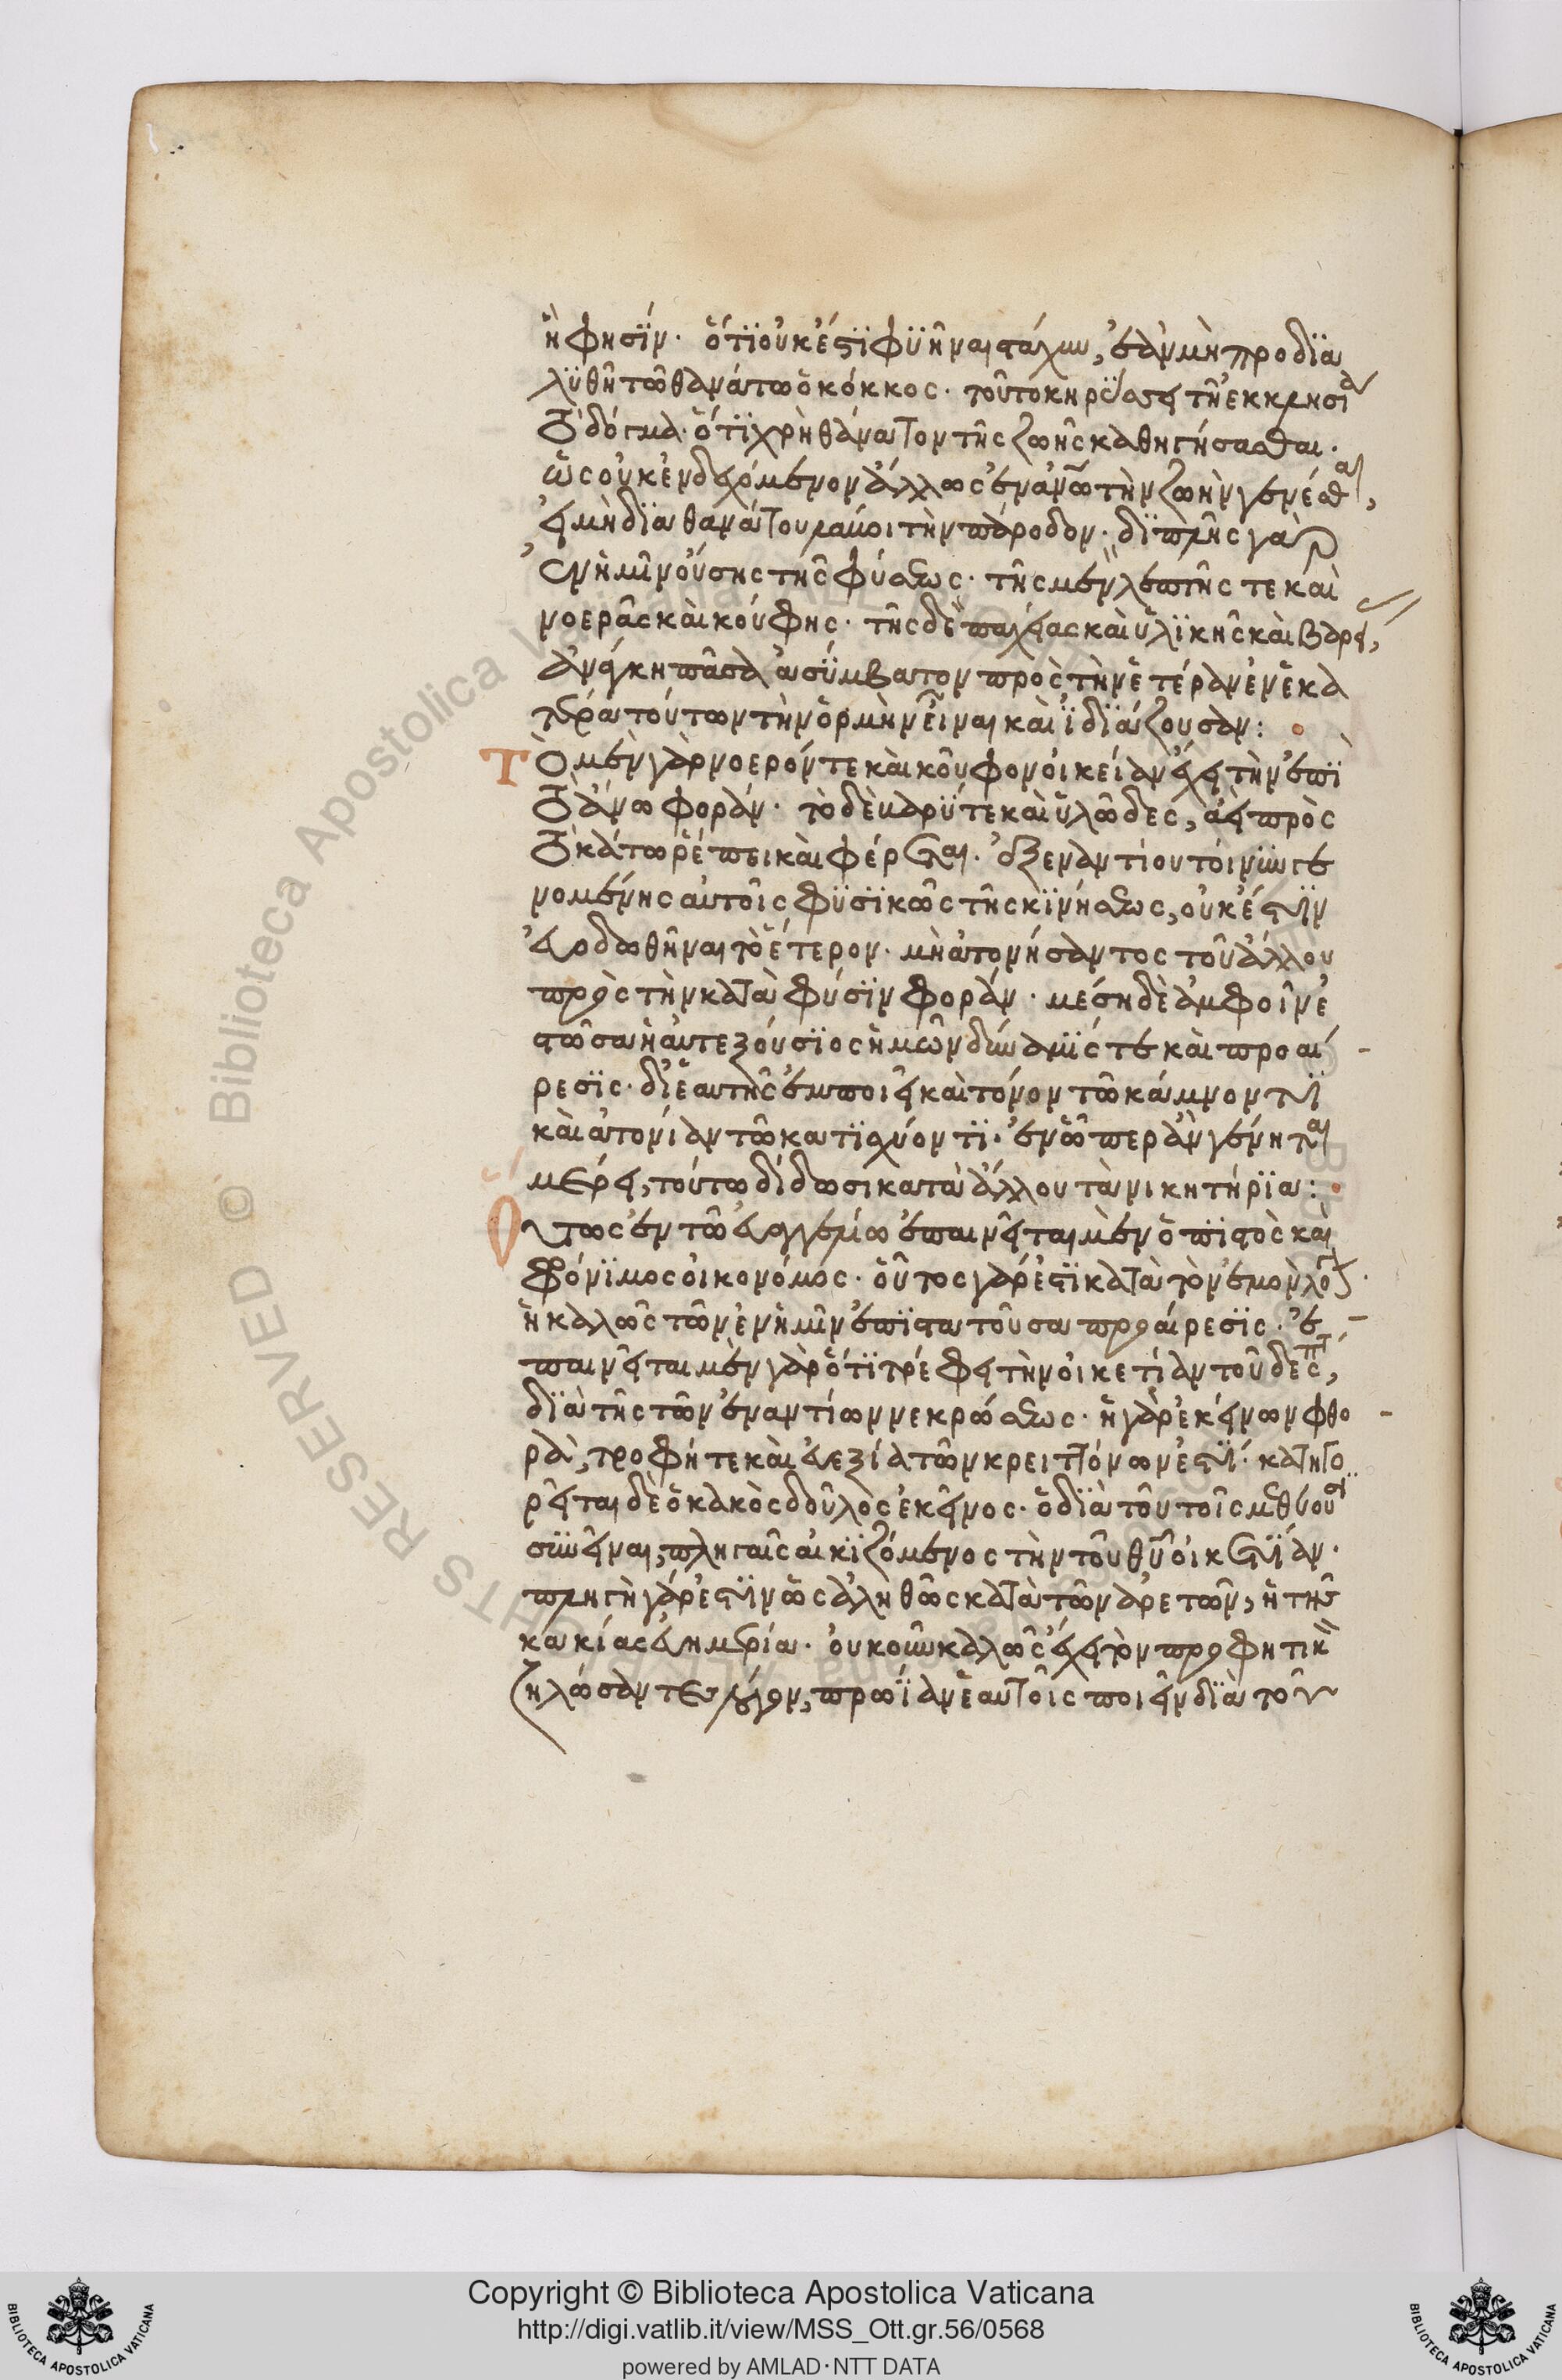 ἣ φησὶν· ὅτι οὐκ ἔστι φυῆναι στάχυν, ἐὰν μὴ προδια
λυθῆ τῶ θανάτω ὁ κόκκος· τοῦτο κηρύσσει τῆ ἐκκλησία
τὸ δόγμα· ὅτι χρὴ θάνατον τῆς ζωῆς καθηγήσασθαι·
ὡς οὐκ ἐνδεχόμενον ἄλλως ἐν ἀνω τὴν ζωὴν γενέσθαι,
εἰ μὴ διὰ θανάτου λάβοι τὴν πάροδον· διπλῆς γὰρ
ἐν ἡμῖν οὔσης τῆς φύσεως· τῆς μὲν λεπτῆς τε καὶ
νοερᾶς καὶ κούφης· τῆς δὲ παχείας καὶ ὑλικῆς καὶ βαρείας,
ἀνάγκη πᾶσα ἀσύμβατον πρὸς τὴν ἑτέραν ἐν ἑκα
τέρα τούτων τὴν ὁρμὴν εἶναι καὶ ἰδιάζουσαν:
Τὸ μὲν γὰρ νοερόν τε καὶ κοῦφον οἰκείαν ἔχει τὴν ἐπὶ
τὸ ἄνω φοράν· τὸ δὲ βαρύ τε καὶ ὑλῶδες, ἀεὶ πρὸς
τὸ κάτω ῥέπει καὶ φέρεται· ἐξ ἐναντίου τοίνυν γε
νομένης αὐτοῖς φυσικῶς τῆς κινήσεως, οὐκ ἔστιν
εὐοδωθῆναι τὸ ἕτερον· μὴ ἀτονήσαντος τοῦ ἄλλου
πρὸς τὴν κατὰ φύσιν φοράν· μέση δὲ ἀμφοῖν ἑ
στῶσα ἡ αὐτεξούσιος ἡμῶν δύναμίς τε καὶ προαί
ρεσις· δι' ἑαυτῆς ἐμποιεῖ καὶ τόνον τῶ κάμνοντι
καὶ ἀτονίαν τῶ κατισχύοντι· ἐν ᾧπερ ἂν γένηται
μέρει, τούτω δίδωσι κατὰ ἄλλου τὰ νικητήρια:
Οὕτως ἐν τῶ εὐαγγελίω ἐπαινεῖται μὲν ὁ πιστὸς καὶ
φρόνιμος οἰκονόμος· οὗτος γάρ ἐστι κατὰ τὸν ἐμὸν λόγον·
ἡ καλῶς τῶν ἐν ἡμῖν ἐπιστατοῦσα προαίρεσις· ἐ
παινεῖται μὲν γὰρ ὅτι τρέφει τὴν οἰκετίαν τοῦ δεσπότου,
διὰ τῆς τῶν ἐναντίων νεκρώσεως· ἡ γὰρ ἐκείνων φθο
ρὰ, τροφή τε καὶ εὐεξία τῶν κρειττόνων ἐστί· κατηγο
ρεῖται δὲ ὁ κακὸς δοῦλος ἐκεῖνος· ὁ διὰ τοῦ τοῖς μεθύουσι
συνεῖναι, πληγαῖς αἰκιζόμενος τὴν τοῦ θυ οἰκετίαν·
πληγὴ γάρ ἐστιν ὡς ἀληθῶς κατὰ τῶν ἀρετῶν, ἡ τῆς
κακίας εὐημερία· οὐκοῦν καλῶς ἔχει τὸν προφητικὸν
ζηλώσαντες λόγον, πρωΐαν ἑαυτοῖς ποιεῖν διὰ τοῦ
Copyright © Biblioteca Apostolica Vaticana
http://digi.vatlib.it/view/MSS_Ott.gr.56/0568
powered by AMLAD·NTT DATA